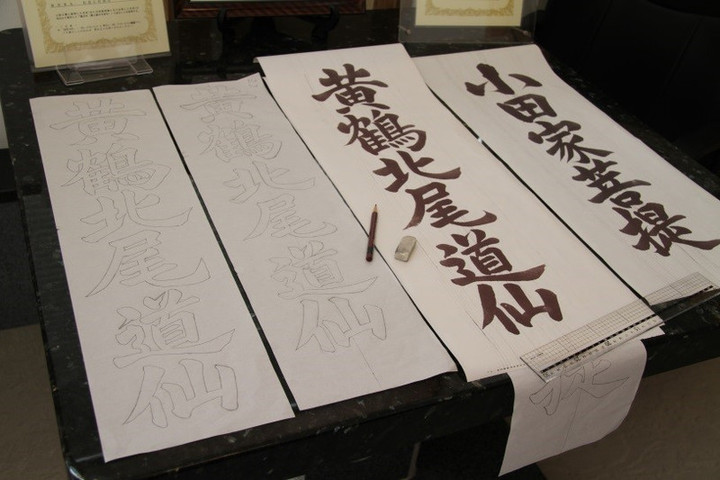 黄鶴北尾道仙
黄鶴北尾道仙
黄鶴北尾道仙
小田家菩提